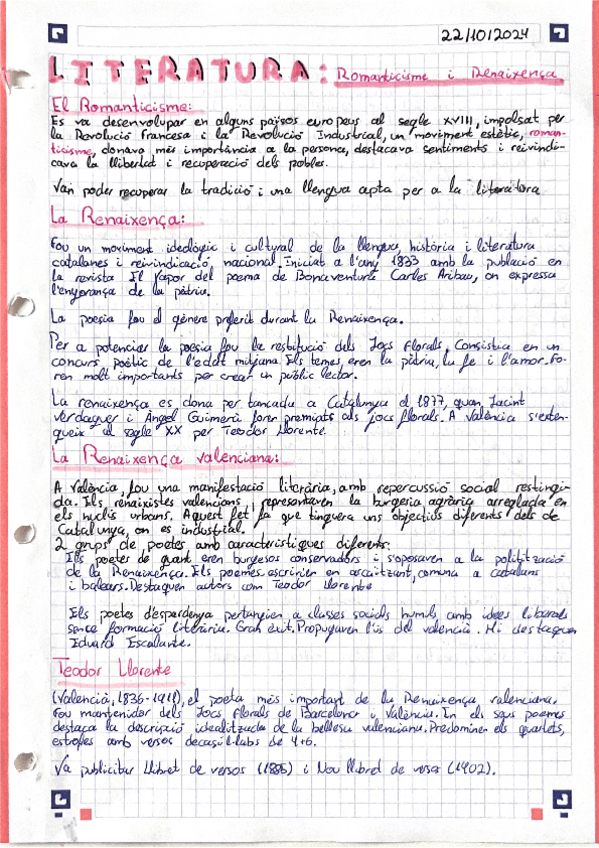 22/10/2024
LITERATURA: Romanticisme i Renaixença
El Romanticisme:
Es va desenvolupar en alguns països europeus al segle XVIII, impolsat per
la Revolució Francesa i la Revolució Industrial, un moviment estètic, roman-
ticisme, donava més importància a la persona, destacava sentiments i reivindi-
cava la llibertat i recuperació dels pobles.
Van poder recuperar la tradició i una llengua apta per a la literatura
La Renaixença:
Fou un moviment ideològic i cultural de la llengua, història i literatura
catalanes i reivindicació nacional. Iniciat a l'any 1833 amb la publicació en
la revista El Vapor del poema de Bonaventura Carles Aribau, on expressa
l'enyorança de la pàtria.
La poesia fou el gènere preferit durant la Renaixença.
Per a potenciar la poesia fou la restitució dels Jocs Florals. Consistia en un
concurs poètic de l'edat mitjana. Els temes eren la pàtria, la fe i l'amor. Fo-
ren molt importants per crear un públic lector.
La renaixença es dona per tancada a Catalunya el 1877, quan Jacint
Verdaguer i Àngel Guimerà foren premiats als jocs florals. A València s'esten-
gueix al segle XX per Teodor Llorente.
La Renaixença valenciana:
A València, fou una manifestació literària, amb repercussió social restringi-
da. Els renaixistes valencians representaven la burgesia agrària arreglada en
els nuclis urbans. Aquest fet fa que tinguera uns objectius diferents dels de
Catalunya, on es industrial.
2 grups de poetes amb característiques diferents:
Els poetes de guant eren burgesos conservadors i s'oposaven a la politització
de la Renaixença. Els poemes escrivien en arcaitzant, comuna a catalans
i balears. Destaquen autors com Teodor Llorente
Els poetes d'espardenya pertanyien a classes socials humils amb idees liberals
sense formació literària. Gran èxit. Propugnaven l'ús del valencià. Hi destaquen
Eduard Escalante.
Teodor Llorente
(Valencià, 1836-1911), el poeta més important de la Renaixença valenciana.
Fou mantenidor dels Jocs Florals de Barcelona i València. En els seus poemes
destaca la descripció idealitzada de la bellesa valenciana. Predominen els quartets,
estrofes amb versos decasíl·labs de 4+6.
Va publicitar Llibret de versos (1885) i Nou llibret de versos (1902).